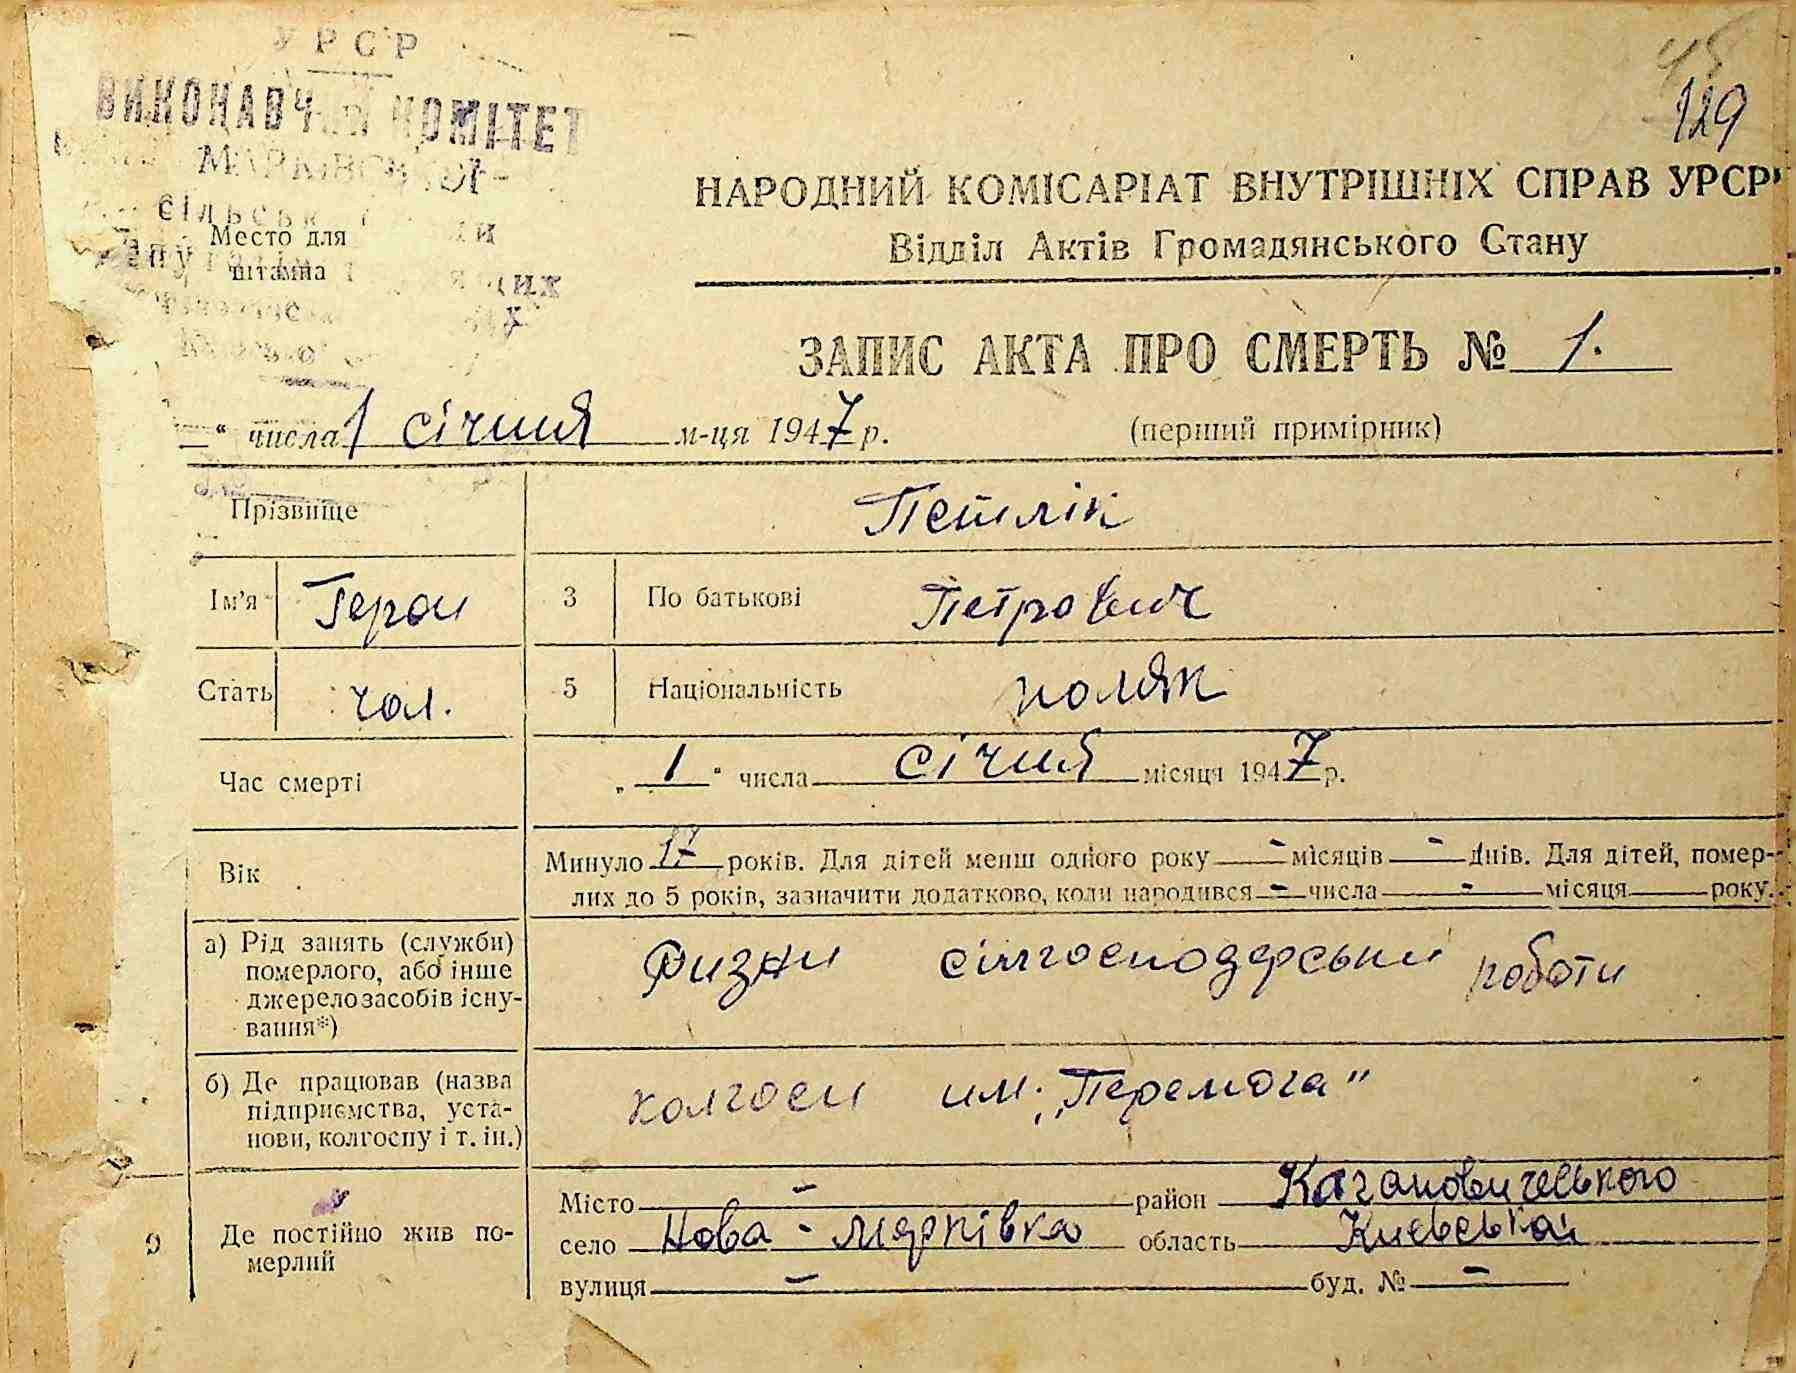 УРСР
ВИКОНАВЧИЙ КОМІТЕТ
МАРКІВСЬКОЇ
Место для
штампа
45
129
НАРОДНИЙ КОМІСАРІАТ ВНУТРІШНІХ СПРАВ УРСР
Відділ Актів Громадянського Стану
ЗАПИС АКТА ПРО СМЕРТЬ № 1.
" числа 1 січня м-ця 1947 р.
(перший примірник)
Прізвище Петлік
Ім'я Геран 3 По батькові Петрович
Стать чол. 5 Національність поляк
Час смерті „ 1 " числа січня місяця 1947 р.
Вік Минуло 17 років. Для дітей менш одного року - місяців - днів. Для дітей, помер-
лих до 5 років, зазначити додатково, коли народився - числа - місяця року.
а) Рід занять (служби)
померлого, або інше
джерело засобів існу-
вання*)
Физни сілгосподарськи роботи
б) Де працював (назва
підприємства, уста-
нови, колгоспу і т. ін.)
колгосп им. „Перемога"
9 Де постійно жив по-
мерлий
Місто - район Кагановичеського
село Нова - Марківка область Києвськой
вулиця - буд. № -